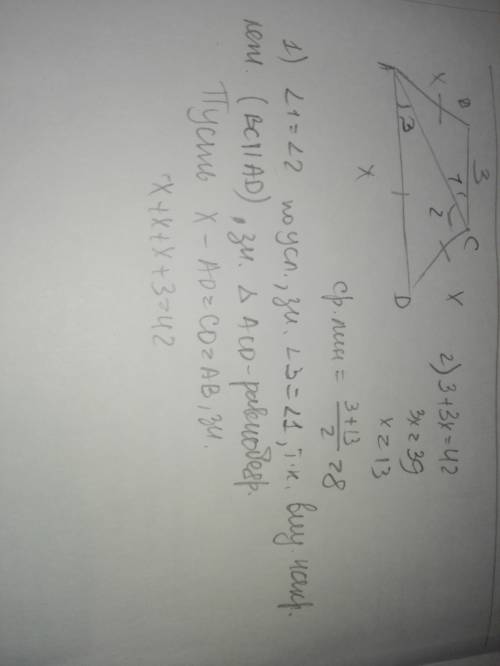 B
3
C
x
1
2
x
A
3
D
x
2) 3+3x=42
3x=39
x=13
ср. лин = 3+13/2 = 8
1) ∠1=∠2 по усл., зн. ∠3=∠1, т.к. внут. накр.
леж. (BC||AD), зн. △ ACD-равнобедр.
Пусть x - AD=CD=AB, зн.
x+x+x+3=42